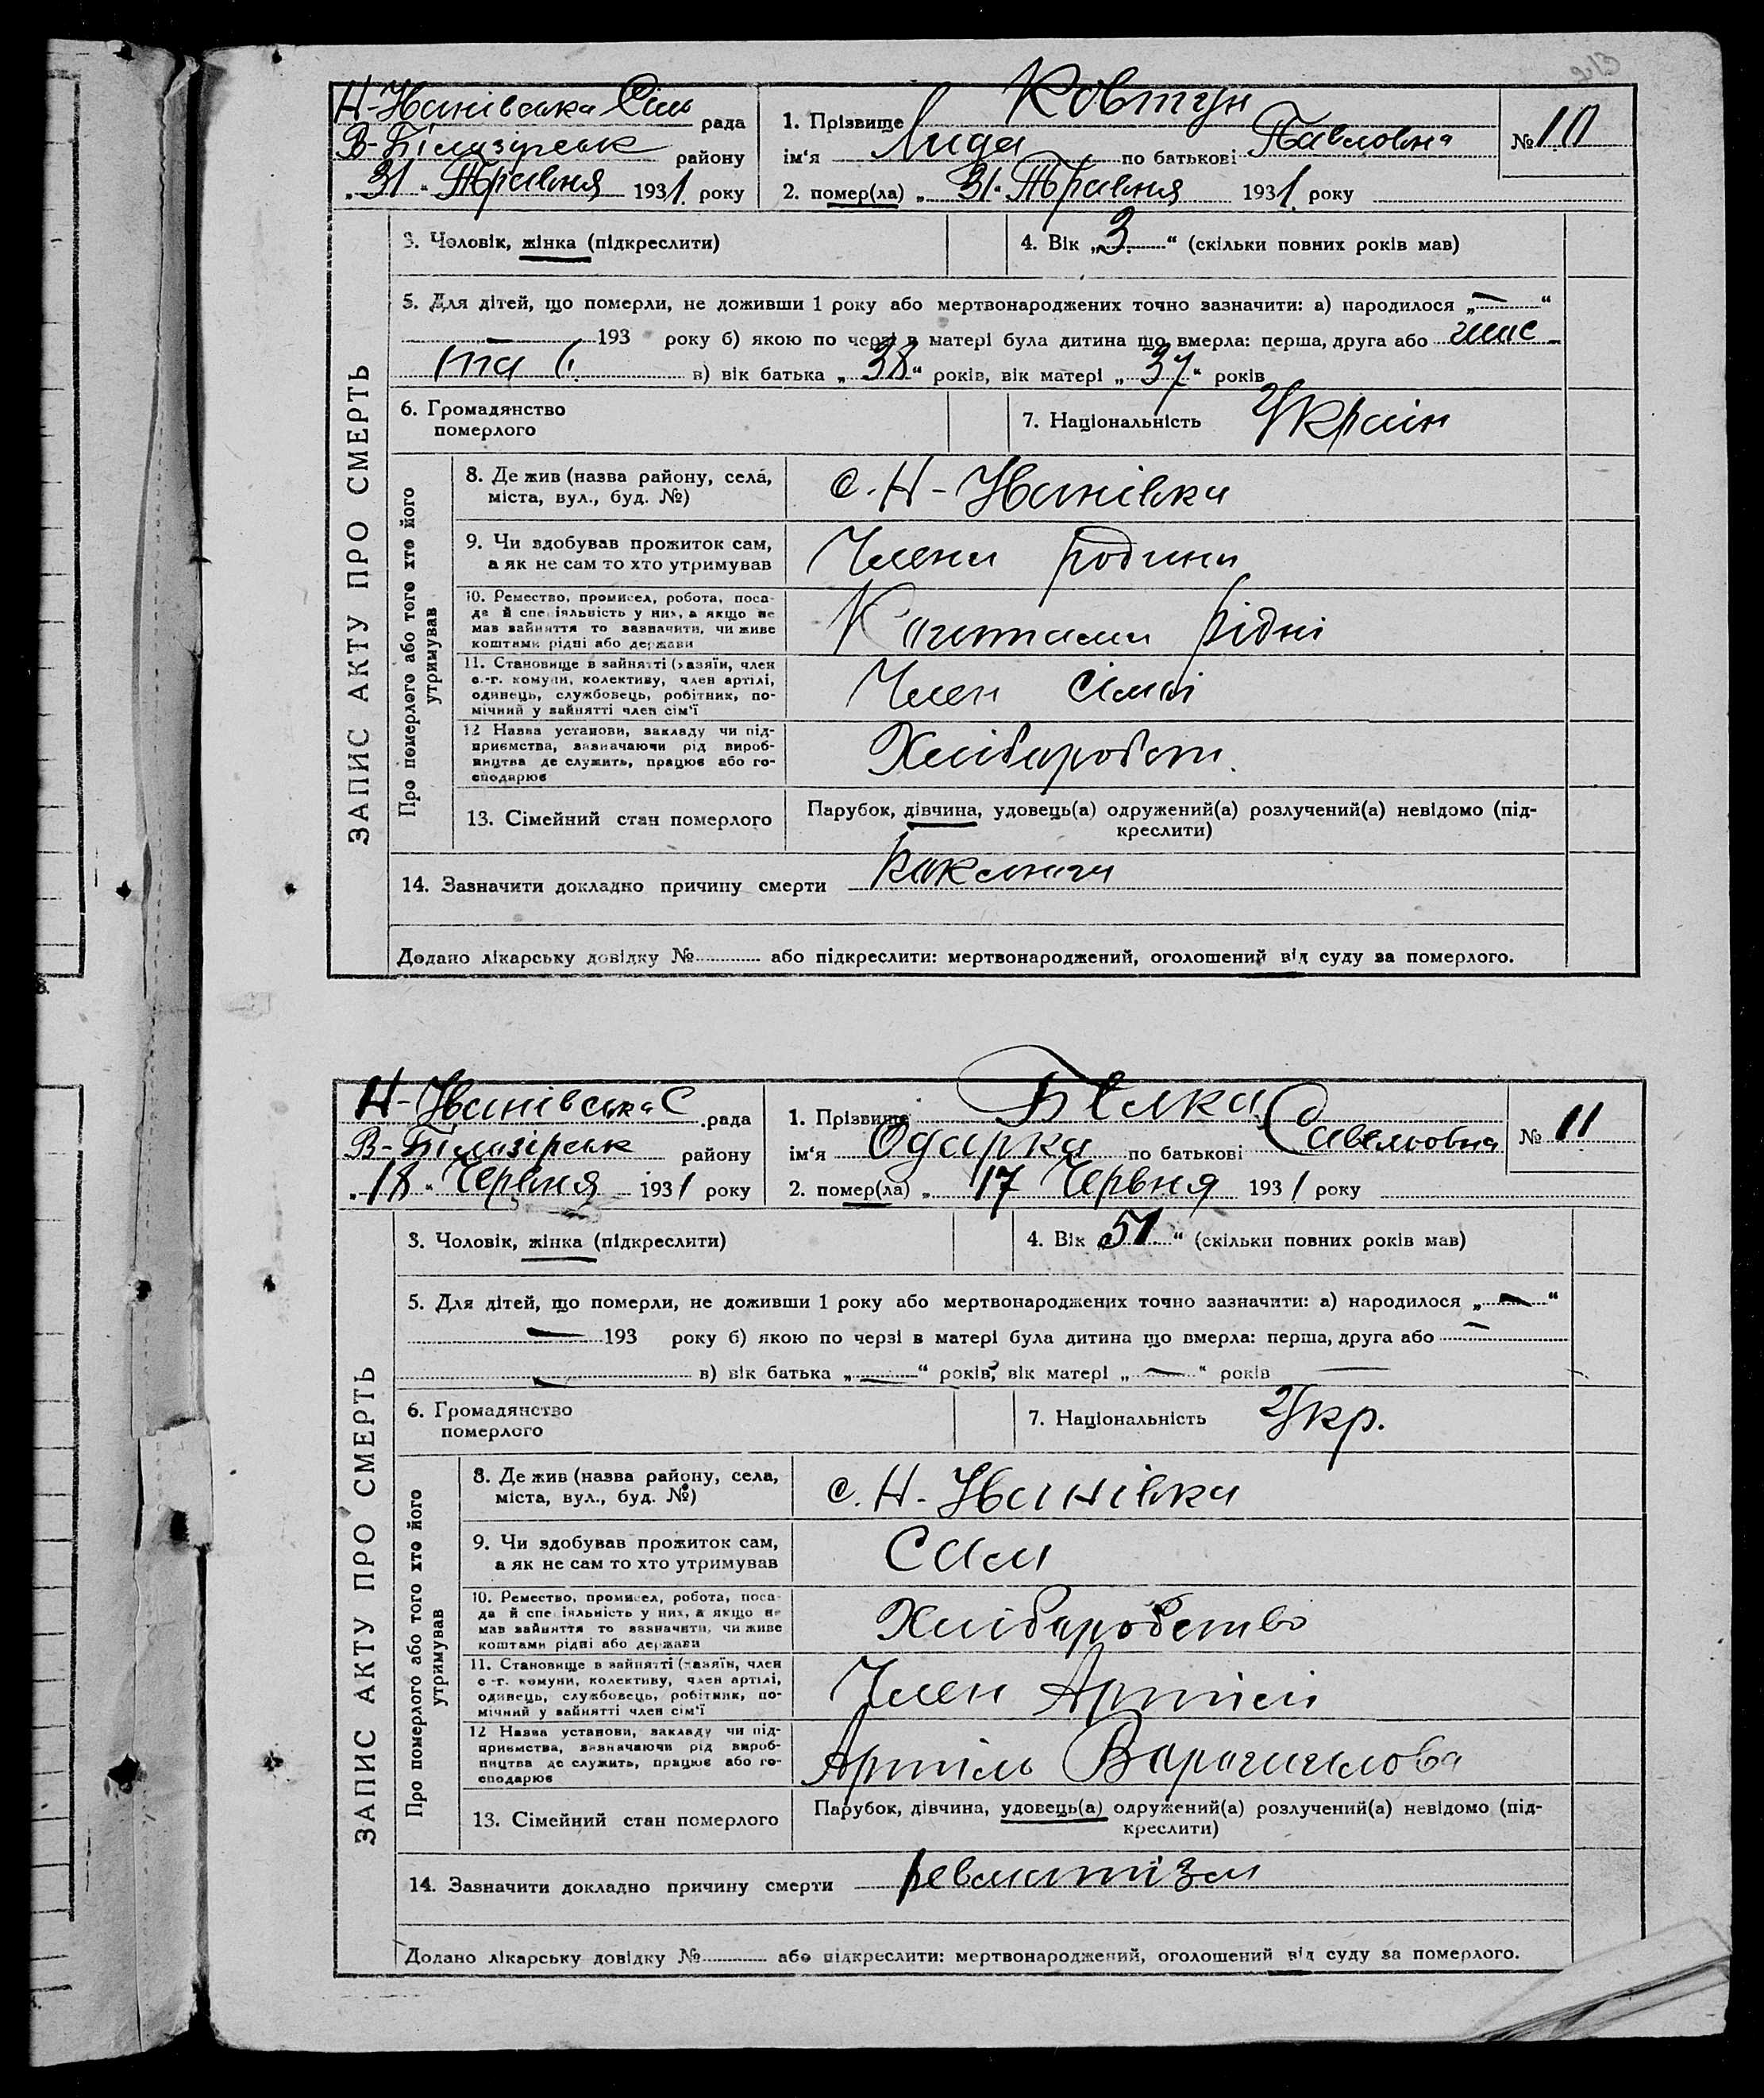 Н-Иванівська Сіль рада
В-Білозірськ району
„31“ Травня 1931 року
1. Прізвище Ковтун
ім‘я Лида по батькові Павловна
2. помер(ла) „31“ Травня 1931 року
№ 10
ЗАПИС АКТУ ПРО СМЕРТЬ
3. Чоловік, жінка (підкреслити)
4. Вік „3“ (скільки повних років мав)
5. Для дітей, що померли, не доживши 1 року або мертвонароджених точно зазначити: а) народилося „—“
193 року б) якою по черзі в матері була дитина що вмерла: перша, друга або шис
та 6. в) вік батька „38“ років, вік матері „37“ років
6. Громадянство
померлого
7. Національність Украін
Про померлого або того хто його
утримував
8. Де жив (назва району, села,
міста, вул., буд. №)
с. Н-Иванівка
9. Чи здобував прожиток сам,
а як не сам то хто утримував
Члени родини
10. Ремество, промисел, робота, поса-
да й спеціяльність у них, а якщо не
мав зайняття то зазначити, чи живе
коштами рідні або держави
Коштами рідні
11. Становище в зайнятті (хазяїн, член
с.-г. комуни, колективу, член артілі,
одинець, службовець, робітник, по-
мічний у зайнятті член сім‘ї
Член сімьі
12 Назва установи, закладу чи під-
приємства, зазначаючи рід вироб-
ництва де служить, працює або го-
сподарює
Хлібаробст.
13. Сімейний стан померлого
Парубок, дівчина, удовець(а) одружений(а) розлучений(а) невідомо (під-
креслити)
14. Зазначити докладно причину смерти
Додано лікарську довідку № або підкреслити: мертвонароджений, оголошений від суду за померлого.
Н-Иванівська С рада
В-Білозірськ району
„18“ Червня 1931 року
1. Прізвище Білка
ім‘я Одарка по батькові Савелювна
2. помер(ла) „ 17 Червня 1931 року
№ 11
ЗАПИС АКТУ ПРО СМЕРТЬ
3. Чоловік, жінка (підкреслити)
4. Вік 51“ (скільки повних років мав)
5. Для дітей, що померли, не доживши 1 року або мертвонароджених точно зазначити: а) народилося „—“
— 193 року б) якою по черзі в матері була дитина що вмерла: перша, друга або —
— в) вік батька „—“ років, вік матері „—“ років —
6. Громадянство
померлого
7. Національність Укр.
Про померлого або того хто його
утримував
8. Де жив (назва району, села,
міста, вул., буд. №)
с. Н-Иванівка
9. Чи здобував прожиток сам,
а як не сам то хто утримував
Сам
10. Ремество, промисел, робота, поса-
да й спеціяльність у них, а якщо не
мав зайняття то зазначити, чи живе
коштами рідні або держави
Хлібаробство
11. Становище в зайнятті (хазяїн, член
с-г. комуни, колективу, член артілі,
одинець, службовець, робітник, по-
мічний у зайнятті член сім‘ї
Член Артілі
12 Назва установи, закладу чи під-
приємства, зазначаючи рід вироб-
ництва де служить, працює або го-
сподарює
Артіль Варашилова
13. Сімейний стан померлого
Парубок, дівчина, удовець(а) одружений(а) розлучений(а) невідомо (під-
креслити)
14. Зазначити докладно причину смерти ревматізм
Додано лікарську довідку № або підкреслити: мертвонароджений, оголошений від суду за померлого.